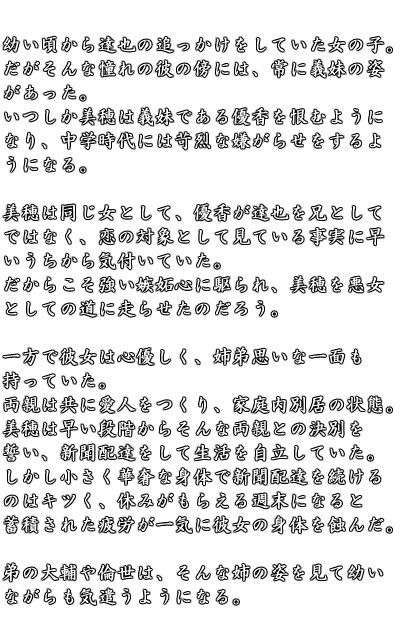 幼い頃から達也の追っかけをしていた女の子。
だがそんな憧れの彼の傍には、常に義妹の姿
があった。
いつしか美穂は義妹である優香を恨むように
なり、中学時代には苛烈な嫌がらせをするよ
うになる。
美穂は同じ女として、優香が達也を兄として
ではなく、恋の対象として見ている事実に早
いうちから気付いていた。
だからこそ強い嫉妬心に駆られ、美穂を悪女
としての道に走らせたのだろう。
一方で彼女は心優しく、姉弟思いな一面も
持っていた。
両親は共に愛人をつくり、家庭内別居の状態。
美穂は早い段階からそんな両親との決別を
誓い、新聞配達をして生活を自立していた。
しかし小さく華奢な身体で新聞配達を続ける
のはキツく、休みがもらえる週末になると
蓄積された疲労が一気に彼女の身体を蝕んだ。
弟の大輔や倫世は、そんな姉の姿を見て幼い
ながらも気遣うようになる。